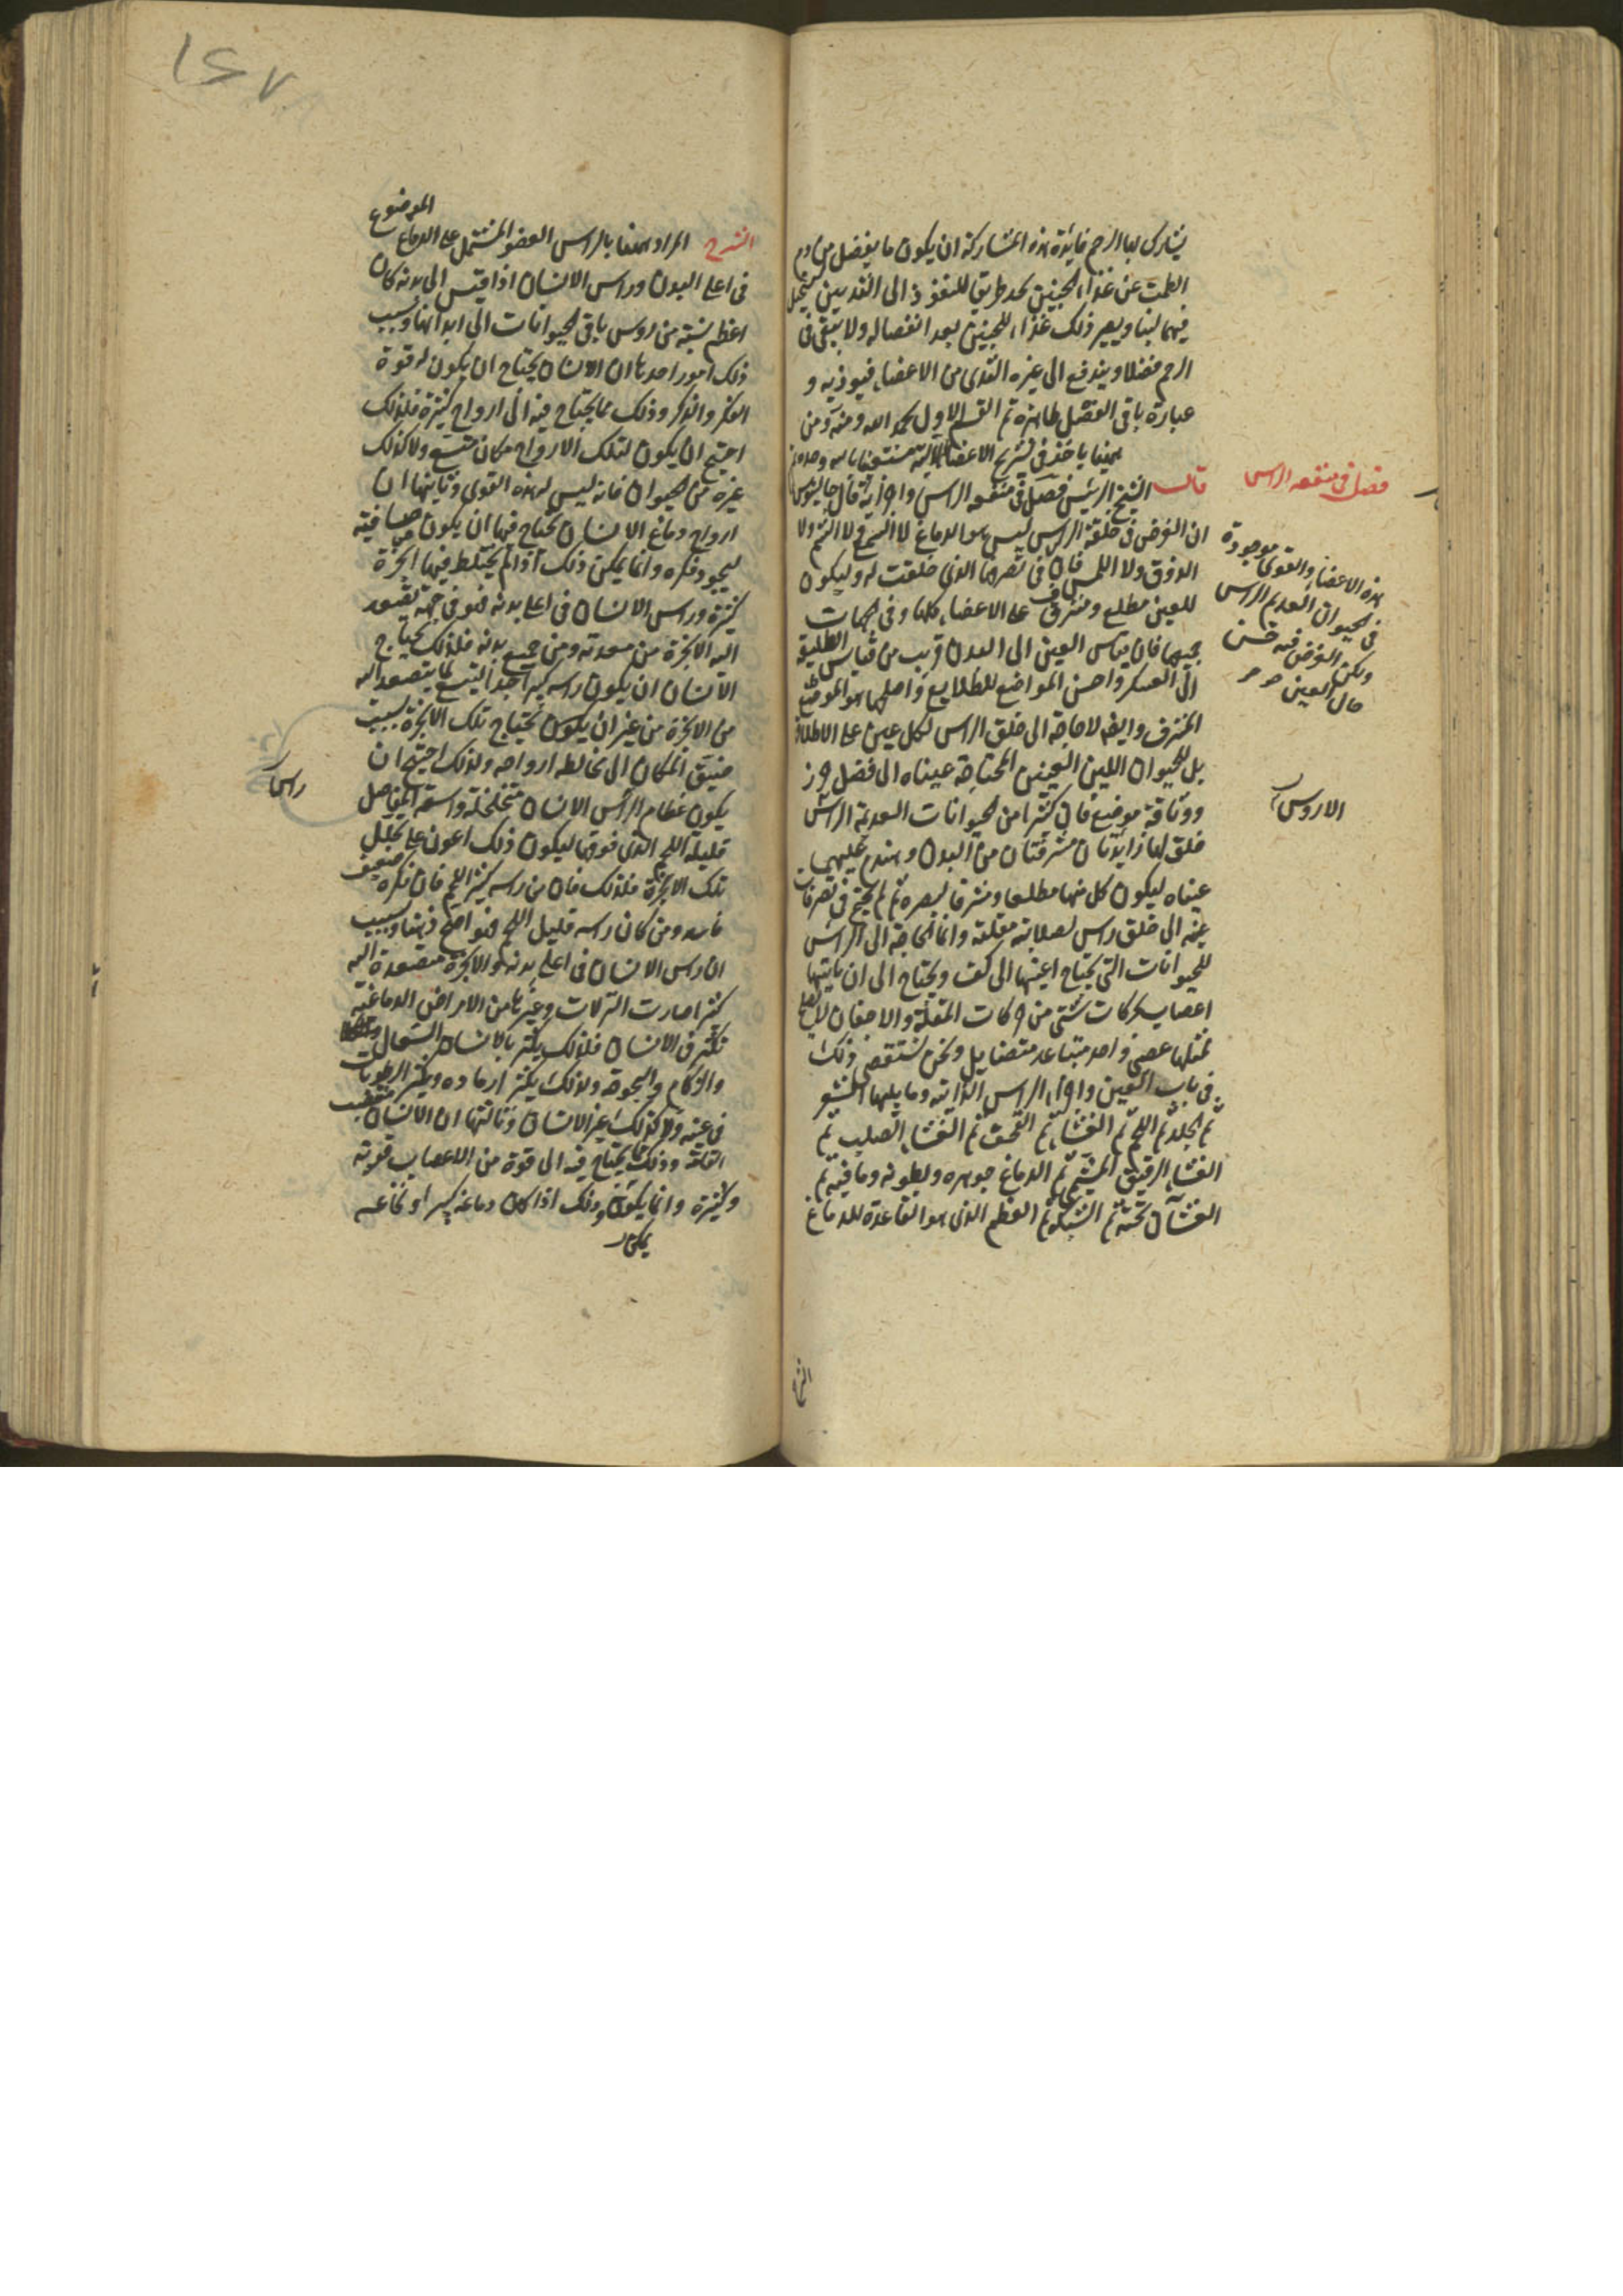 يشارك لها الرحم فايدة هذه المشاركة ان يكون ما يفضل من دم
الطمث عن غذاء الجنين يجد طريق للنفوذ الى الثديين ليستحيل
فيهما لبنا ويصير ذلك غذاء للجنين بعد انفصاله ولا يبقى فى
الرحم فضلا ويندفع الى غيره الثدى من الاعضاء فيوذيه و
عبارة باقى الفصل ظاهرة تم القسم الاول بحمد الله ومنه ومن
ههنا ياخذ فى تشريح الاعضاء الآلية مستعينا بالله وحده
فصل فى منفعه الراس
قال الشيخ الرئيس فصل فى منفعه الراس واجزايه قال جالينوس
ان الغرض فى خلقة الراس ليس هو الدماغ لا السمع ولا الشم ولا
الذوق ولا اللمس فان
هذه الاعضاء والقوى موجودة
فى الحيوان العديم الراس
ولكن الغرض فيه حسن
حال العين
فى تصرفها الذى خلقت له وليكون
للعين مطلع ومشرف على الاعضاء كلها وفى الجهات
جميعها فان قياس العين الى البدن قريب من قياس الطليعة
الى العسكر واحسن المواضع للطلايع واصلحها هو الموضع
المشرف وايضا لا حاجة الى خلق الراس لكل عين على الاطلاق
بل للحيوان اللين العينين المحتاجة عيناه الى فضل حرز
ووثاقة موضع فان كثيرا من الحيوانات العديمة الراس
الاروس
خلق لها زايدتان مشرفتان من البدن وهندم عليهما
عيناه ليكون كل منها مطلعا ومشرفا لبصره ثم لم يحتج فى تصرفات
عينه الى خلق راس لصلابة مقلته وانما الحاجة الى الراس
للحيوانات التى يحتاج اعينها الى كف ويحتاج الى ان ياتيها
اعصاب لحركات شتى من حركات المقلة والاجفان لا
لمثلها عصب واحد متباعد متضايل ونحن نستقصى ذلك
فى باب العين واجزاء الراس الذاتية وما يليها الشعر
ثم الجلد ثم اللحم ثم الغشاء ثم القحف ثم الغشاء الصلب ثم
الغشاء الرقيق المشيمى ثم الدماغ جوهره وبطونه وما فيه ثم
الغشاآن تحته ثم الشبكة ثم العظم الذى هو القاعدة للدماغ
الشرح
١٤٧
الشرح المراد ههنا بالراس العضو المشتمل على الدماغ الموضوع
فى اعلى البدن وراس الانسان اذا قيس الى بدنه كان
اعظم نسبة من روس باقى الحيوانات الى ابدانها وسبب
ذلك امور احدها ان الانسان يحتاج ان يكون له قوة
الفكر والذكر وذلك مما يحتاج فيه الى ارواح كثيرة فلذلك
احتيج ان يكون لتلك الارواح مكان متسع ولا كذلك
غيره من الحيوان فانه ليس له هذه القوى وثانيها ان
ارواح دماغ الانسان يحتاج فيها ان يكون صافية
ليجود فكره وانما يمكن ذلك اذا لم يختلط فيها ابخرة
كثيرة وراس الانسان فى اعلى بدنه فهو فى جهة تصعد
اليه الابخرة من معدته ومن جميع بدنه فلذلك يحتاج
الانسان ان يكون راسه كبيرا جدا ليتسع لما يتصعد اليه
من الابخرة من غير ان يكون يحتاج تلك الابخرة بسبب
ضيق المكان الى مخالطه ارواحه ولذلك احتيج ان
يكون عظام الراس الانسان متخلخلة واسعة المفاصل
راس
قليلة اللحم الذى فوقها ليكون ذلك اعون على تحلل
تلك الابخرة فلذلك فان من راسه كثير اللحم فان فكره ضعيف
فاسد ومن كان راسه قليل اللحم فهو اصح ذهنا وبسبب
ان راس الانسان فى اعلى بدنه والابخرة متصعدة اليه
كثيرا صارت النزلات وغيرها من الامراض الدماغية
تكثر فى الانسان فلذلك يكثر بالانسان السعال
والزكام والبحوحة ولذلك يكثر ارماده ويكثر الرطوبات
فى عينه ولا كذلك غير الانسان وثالثها ان الانسان منتصب
القامة وذلك مما يحتاج فيه الى قوة من الاعصاب قوية
وكثيرة وانما يكون ذلك اذا كان دماغه كبيرا ونخاعه
يمكن